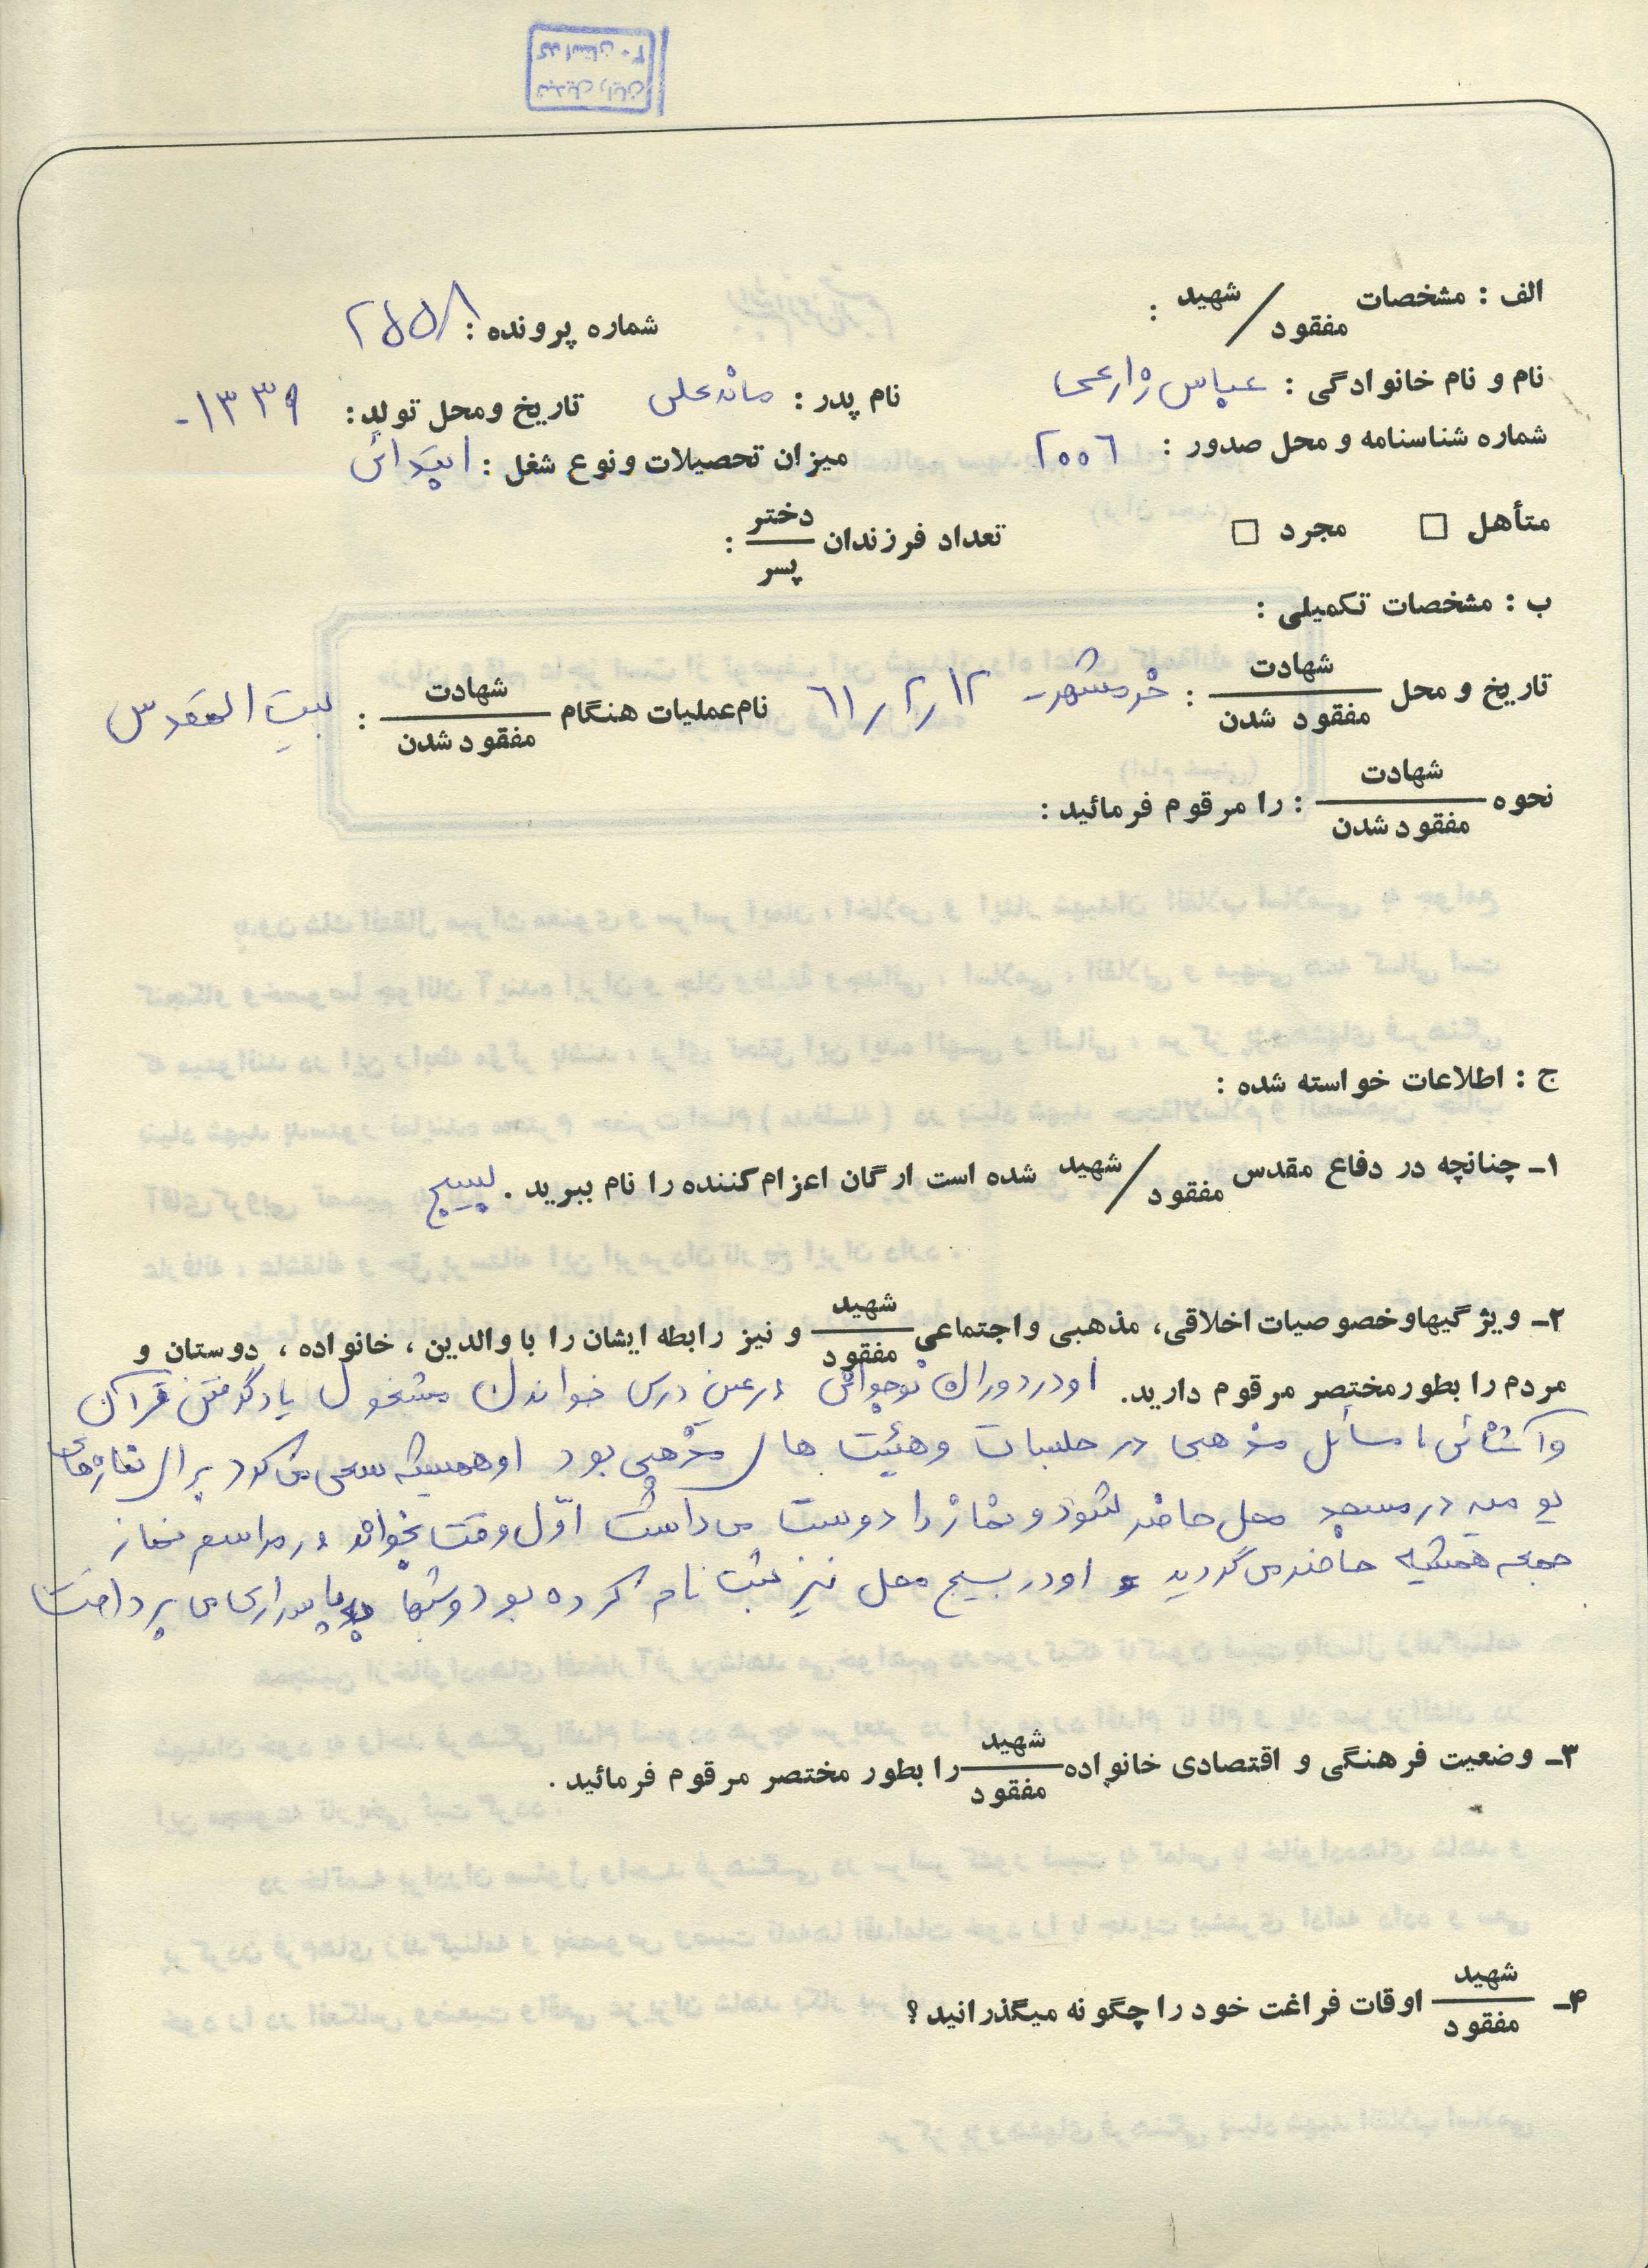 الف : مشخصات شهید / مفقود :
شماره پرونده : ۲۵۵۸
نام و نام خانوادگی : عباس زارعی نام پدر : ماندعلی تاریخ و محل تولد : ۱۳۳۹-
شماره شناسنامه و محل صدور : ۲۰۰۶ میزان تحصیلات و نوع شغل : ابتدائی
متأهل □ مجرد □ تعداد فرزندان دختر / پسر :
ب : مشخصات تکمیلی :
تاریخ و محل شهادت / مفقود شدن : خرمشهر - ۶۱/۲/۱۲ نام عملیات هنگام شهادت / مفقود شدن : بیت المقدس
نحوه شهادت / مفقود شدن : را مرقوم فرمائید :
ج : اطلاعات خواسته شده :
۱ـ چنانچه در دفاع مقدس شهید / مفقود شده است ارگان اعزام کننده را نام ببرید . بسیج
۲ـ ویژگیها و خصوصیات اخلاقی، مذهبی و اجتماعی شهید / مفقود و نیز رابطه ایشان را با والدین ، خانواده ، دوستان و
مردم را بطور مختصر مرقوم دارید. او در دوران نوجوانی در عین درس خواندن مشغول یادگرفتن قرآن
و آشنائی با مسائل مذهبی در جلسات و هیئت های مذهبی بود او همیشه سعی می کرد برای نمازهای
یومیه در مسجد محل حاضر شود و نماز را دوست می داشت اوّل وقت بخواند در مراسم نماز
جمعه همیشه حاضر می گردید و او در بسیج محل نیز ثبت نام کرده بود و شبها به پاسداری می پرداخت
۳ـ وضعیت فرهنگی و اقتصادی خانواده شهید / مفقود را بطور مختصر مرقوم فرمائید .
۴ـ شهید / مفقود اوقات فراغت خود را چگونه میگذرانید ؟